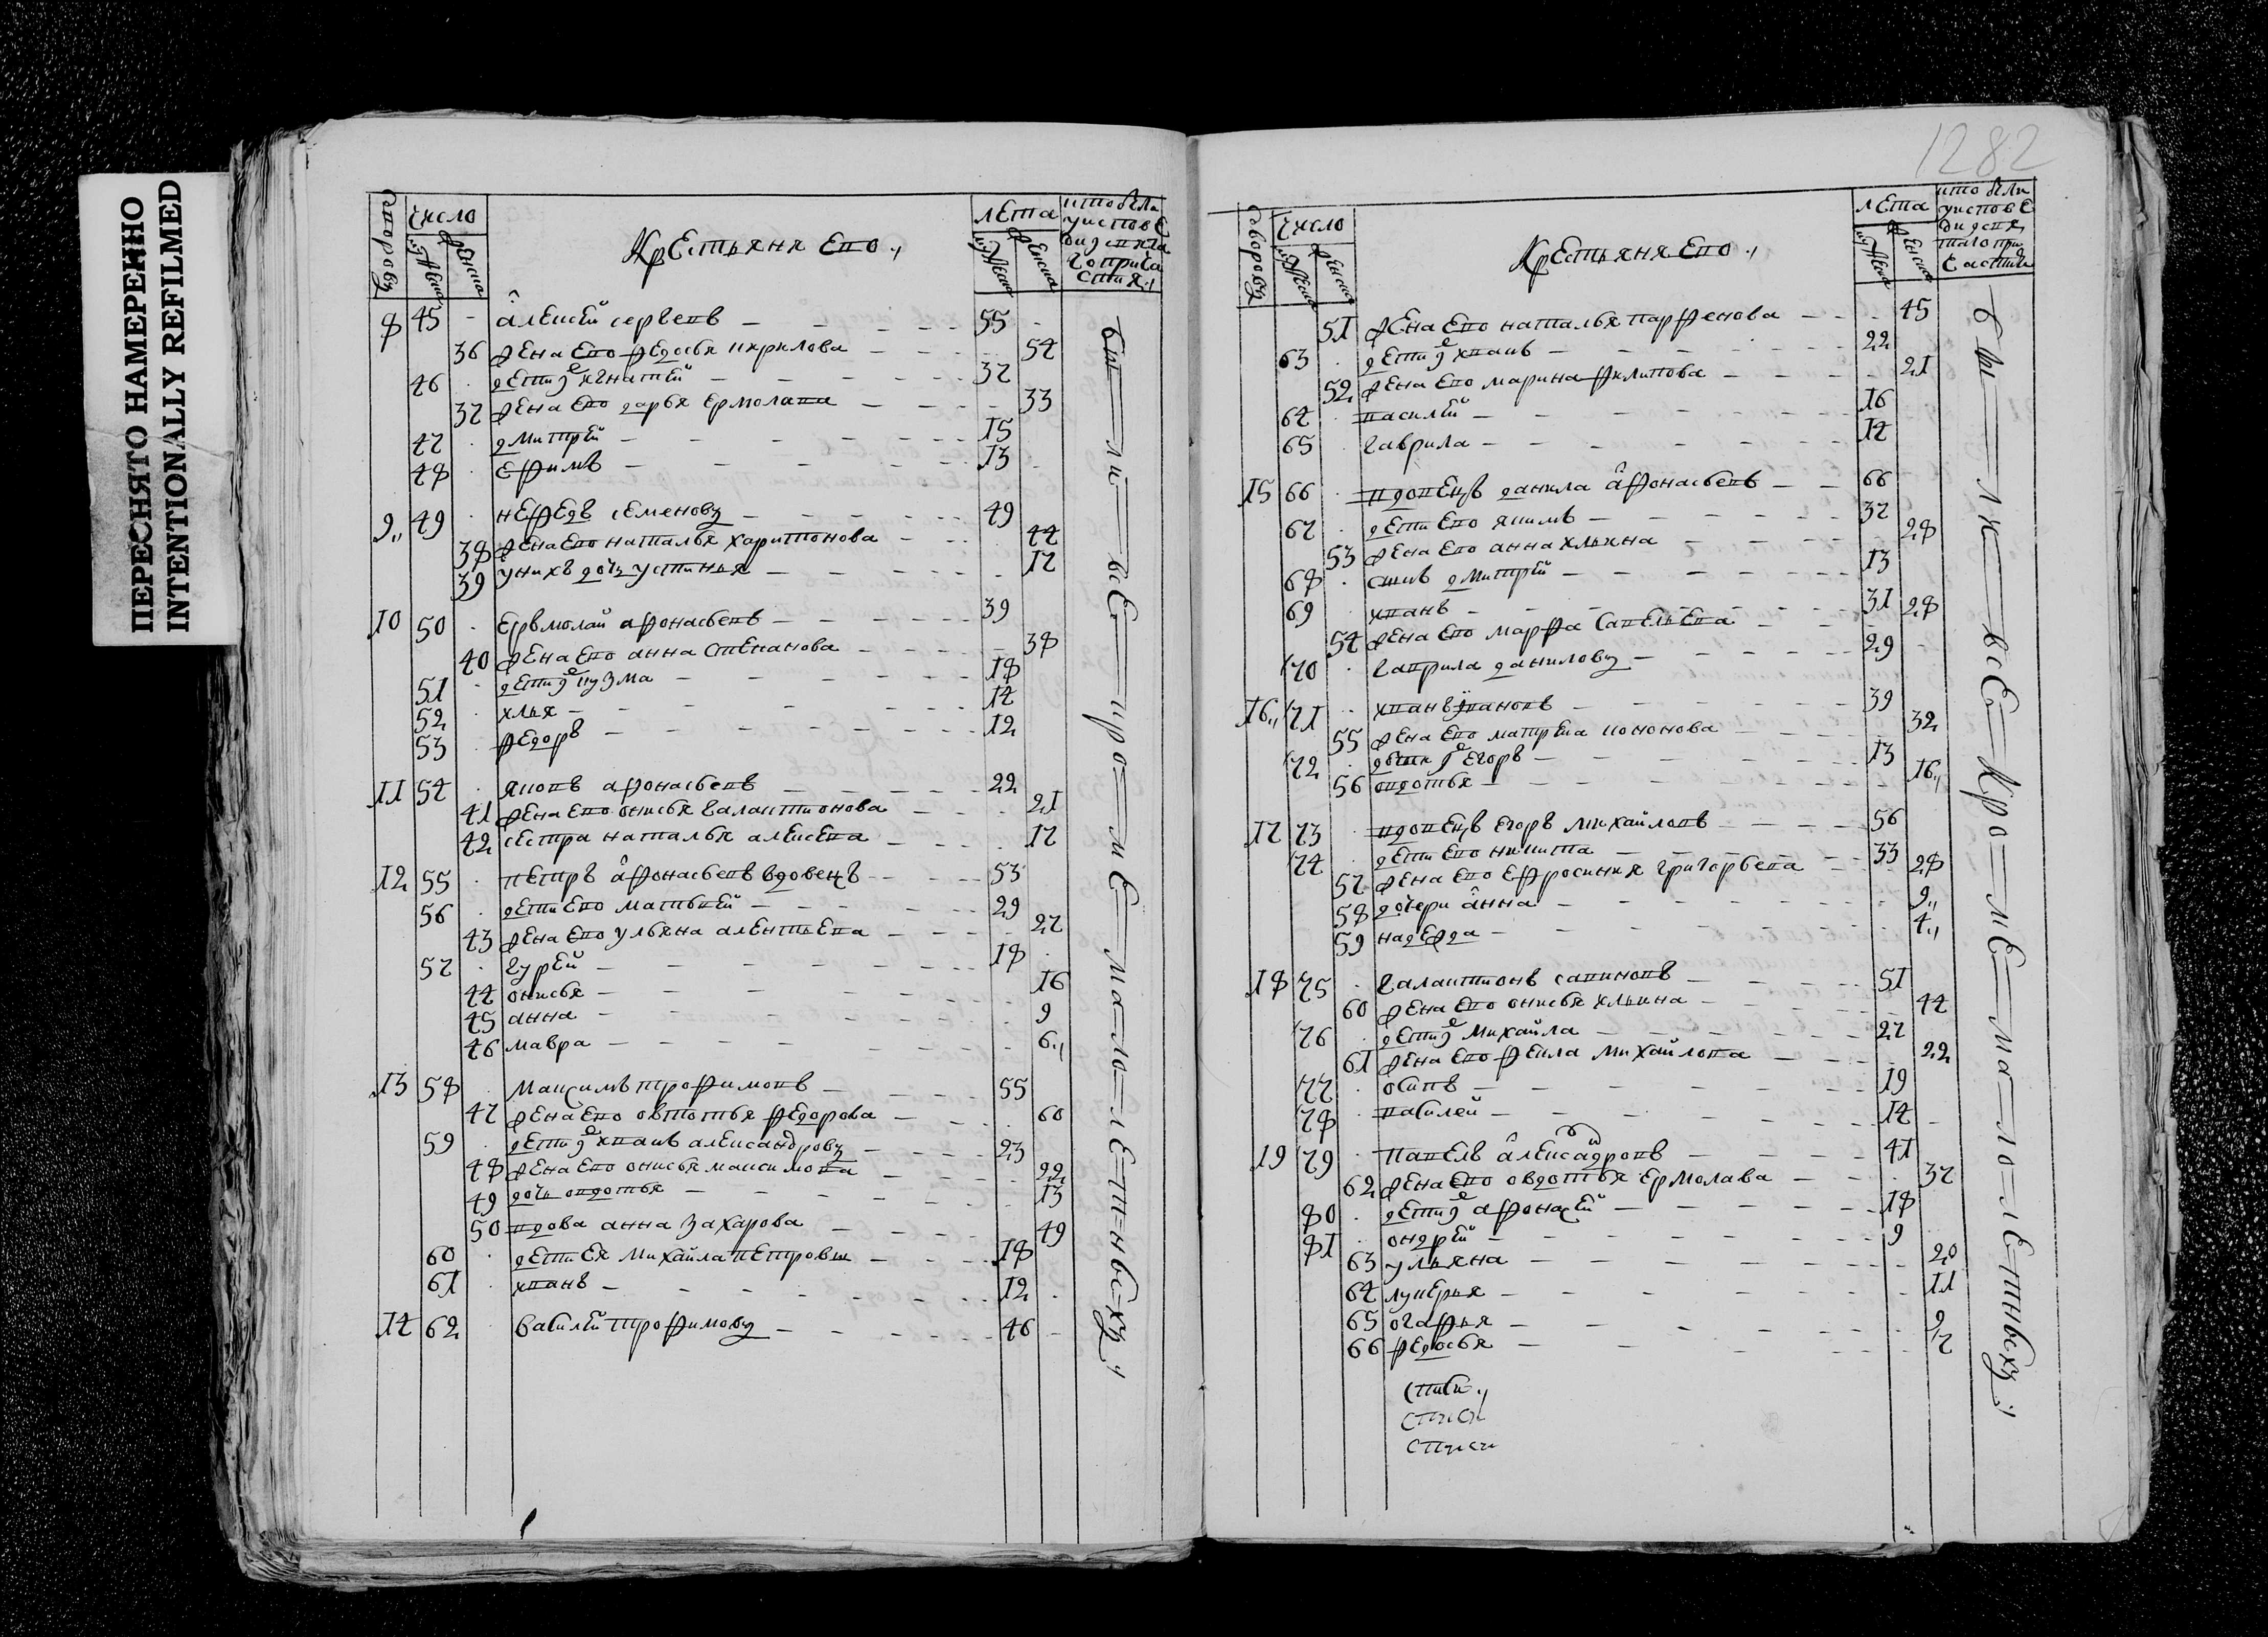 ПЕРЕСНЯТО НАМЕРЕННО
INTENTIONALLY REFILMED
1282
дворовъ число мужеска женска Крестьяня ево лета мужеска женска
хто были
у испове
ди
8 45 алексей сергеевъ 55
36 жена ево федосья кирилова 54
46 дети игнатей 37
37 жена ево дарья ермолава 33
47 дмитрей 15
48 ефимъ 13
9 49 нефедъ семеновъ 49
38 жена ево наталья харитонова 44
39 у нихъ дочь устинья 17
10 50 ермолай афонасьевъ 39
40 жена ево анна степанова 38
51 дети кузма 18
52 илья 14
53 федоръ 12
11 54 яковъ афонасьевъ 22
41 жена ево онисья галактионова 21
42 сестра наталья алексева 17
12 55 петръ афонасьевъ вдовецъ 53
56 дети ево матвей 29
43 жена ево ульяна алентьева 27
57 гурей 18
44 онисья 16
45 анна 9
46 мавра 6
13 58 максимъ трофимовъ 55
47 жена ево овдотья федорова 60
59 дети иванъ александровъ 23
48 жена ево онисья максимова 22
49 дочь овдотья 13
50 вдова анна захарова 49
60 дети ея михайла петровы 18
61 иванъ 12
14 62 василей трофимовъ 46
были все кроме малолетныхъ
дворовъ число мужеска женска Крестьяня ево лета мужеска женска
хто были
у испове
ди
51 жена ево наталья парфенова 45
63 дети иванъ 22
52 жена ево марина филипова 21
64 василей 16
65 гаврила 14
15 66 вдовецъ данила афонасьевъ 66
67 дети ево якимъ 37
53 жена ево анна ильина 28
68 сынъ дмитрей 13
69 иванъ 31
54 жена ево марфа савельева 28
70 гаврила даниловъ 29
16 71 иванъ ивановъ 39
55 жена ево матрена кононова 32
72 дети егоръ 13
56 овдотья 16
17 73 вдовецъ егоръ михайловъ 56
74 дети ево никита 33
57 жена ево ефросиния григорьева 28
58 дочери анна 9
59 надежда 4
18 75 галактионъ савиновъ 51
60 жена ево онисья ильина 44
76 дети михайла 27
61 жена ево фекла михайлова 22
77 осипъ 19
78 василей 14
19 79 павелъ алексадровъ 41
62 жена ево овдотья ермолава 37
80 дети афонасей 18
81 ондрей 9
63 ульяна 20
64 лукерья 11
65 огафья 9
66 федосья 7
были все кроме малолетныхъ